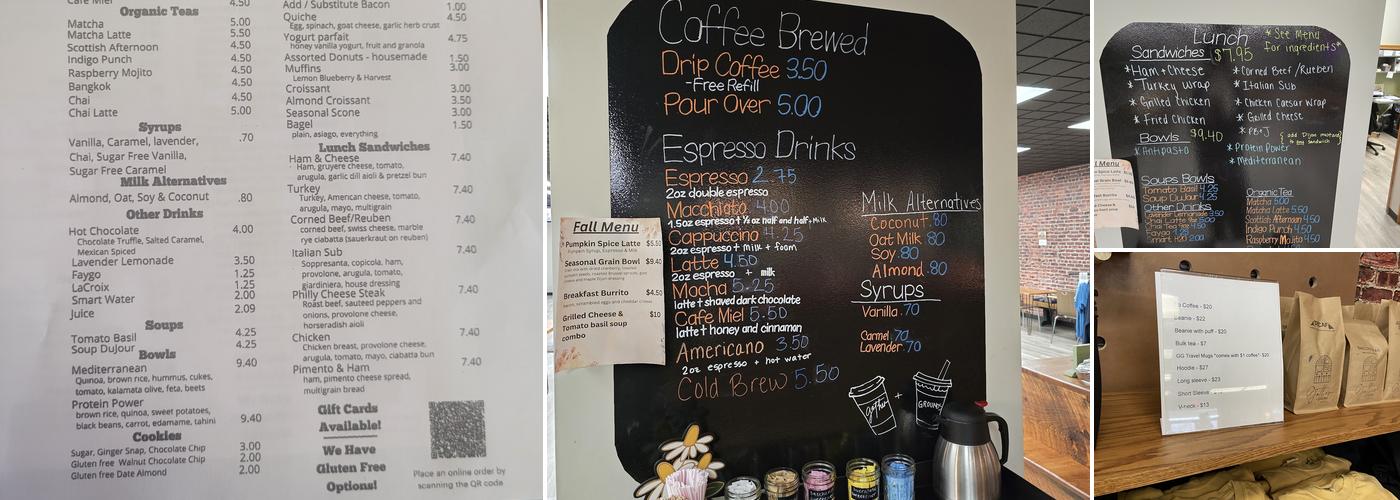 Cafe Miel 4.50
Organic Teas
Matcha 5.00
Matcha Latte 5.50
Scottish Afternoon 4.50
Indigo Punch 4.50
Raspberry Mojito 4.50
Bangkok 4.50
Chai 4.50
Chai Latte 5.00
Syrups
Vanilla, Caramel, lavender, .70
Chai, Sugar Free Vanilla,
Sugar Free Caramel
Milk Alternatives
Almond, Oat, Soy & Coconut .80
Other Drinks
Hot Chocolate 4.00
Chocolate Truffle, Salted Caramel,
Mexican Spiced
Lavender Lemonade 3.50
Faygo 1.25
LaCroix 1.25
Smart Water 2.00
Juice 2.09
Soups
Tomato Basil 4.25
Soup DuJour 4.25
Bowls
Mediterranean 9.40
Quinoa, brown rice, hummus, cukes,
tomato, kalamata olive, feta, beets
Protein Power
brown rice, quinoa, sweet potatoes,
black beans, carrot, edamame, tahini 9.40
Cookies
Sugar, Ginger Snap, Chocolate Chip 3.00
Gluten free Walnut Chocolate Chip 2.00
Gluten free Date Almond 2.00
Add / Substitute Bacon 1.00
Quiche 4.50
Egg, spinach, goat cheese, garlic herb crust
Yogurt parfait 4.75
honey vanilla yogurt, fruit and granola
Assorted Donuts - housemade 1.50
Muffins 3.00
Lemon Blueberry & Harvest
Croissant 3.00
Almond Croissant 3.50
Seasonal Scone 3.00
Bagel 1.50
plain, asiago, everything
Lunch Sandwiches
Ham & Cheese 7.40
Ham, gruyere cheese, tomato,
arugula, garlic dill aioli & pretzel bun
Turkey 7.40
Turkey, American cheese, tomato,
arugula, mayo, multigrain
Corned Beef/Reuben 7.40
corned beef, swiss cheese, marble
rye ciabatta (sauerkraut on reuben)
Italian Sub 7.40
Soppresanta, copicola, ham,
provolone, arugula, tomato,
giardiniera, house dressing
Philly Cheese Steak 7.40
Roast beef, sauteed peppers and
onions, provolone cheese,
horseradish aioli
Chicken 7.40
Chicken breast, provolone cheese,
arugula, tomato, mayo, ciabatta bun
Pimento & Ham 7.40
ham, pimento cheese spread,
multigrain bread
Gift Cards
Available!
We Have
Gluten Free
Options!
Place an online order by
scanning the QR code
Coffee Brewed
Drip Coffee 3.50
-Free Refill
Pour Over 5.00
Espresso Drinks
Espresso 2.75
2oz double espresso
Macchiato 4.00
1.5oz espresso + ½ oz half and half, milk
Cappuccino 4.25
2oz espresso + milk + foam
Latte 4.50
2oz espresso + milk
Mocha 5.25
latte + shaved dark chocolate
Cafe Miel 5.50
latte + honey and cinnamon
Americano 3.50
2oz espresso + hot water
Cold Brew 5.50
Milk Alternatives
Coconut .80
Oat Milk .80
Soy .80
Almond .80
Syrups
Vanilla .70
Carmel .70
Lavender .70
Gather + GROUNDS
Fall Menu
Pumpkin Spice Latte $5.50
Pumpkin Syrup, Espresso & Milk
Seasonal Grain Bowl $9.40
Breakfast Burrito $4.50
Grilled Cheese & $10
Tomato basil soup
combo
Lunch
*See Menu
for ingredients*
Sandwiches $7.95
*Ham + Cheese
*Turkey Wrap
*Grilled Chicken
*Fried Chicken
*Corned Beef/Rueben
*Italian Sub
*Chicken Caesar Wrap
*Grilled Cheese
*PB+J
{add Dijon mustard
to any Sandwich}
Bowls $9.40
*Antipasto
*Protein Power
*Mediterranean
Soups Bowls
Tomato Basil 4.25
Soup DuJour 4.25
Other Drinks
Lavender Lemonade 3.50
Organic Tea
Matcha 5.00
Matcha Latte 5.50
Scottish Afternoon 4.50
Indigo Punch 4.50
Raspberry Mojito 4.50
Coffee - $20
Beanie - $22
Beanie with puff - $20
Bulk tea - $7
GG Travel Mugs *comes with $1 coffee* - $20
Hoodie - $27
Long sleeve - $23
Short Sleeve
V-neck - $13